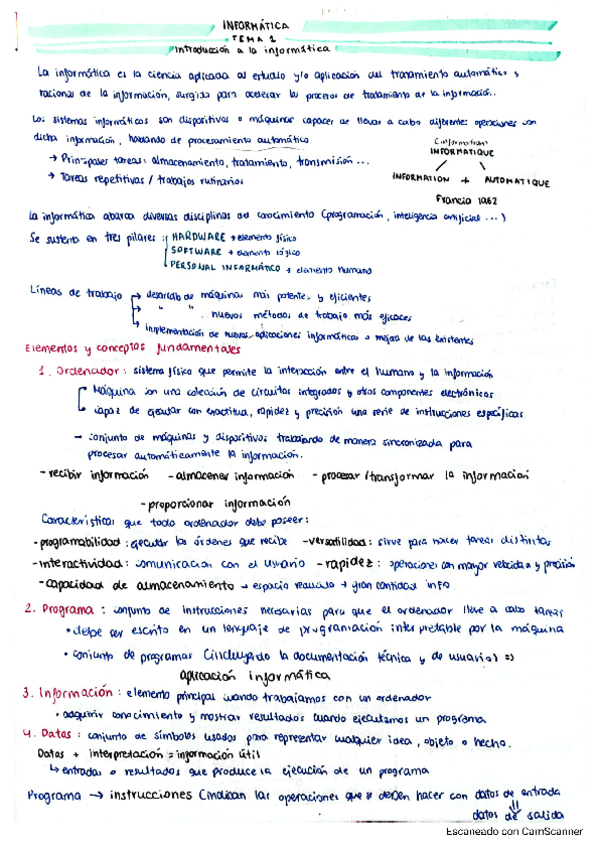 INFORMÁTICA
TEMA 1
Introducción a la informática
La informática es la ciencia aplicada al estudio y/o aplicación del tratamiento automático y
racional de la información, surgida para acelerar los procesos de tratamiento de la información.
Los sistemas informáticos son dispositivos o máquinas capaces de llevar a cabo diferentes operaciones con
dicha información, hablando de procesamiento automático
→ Principales tareas: almacenamiento, tratamiento, transmisión ...
→ Tareas repetitivas / trabajos rutinarios
INFORMATIQUE
INFORMATION + AUTOMATIQUE
Francia 1962
La informática abarca diversas disciplinas del conocimiento (programación, inteligencia artificial ...)
Se sustenta en tres pilares: HARDWARE → elemento físico
SOFTWARE → elemento lógico
PERSONAL INFORMÁTICO → elemento humano
Líneas de trabajo → desarrollo de máquinas más potentes y eficientes
→ " " nuevos métodos de trabajo más eficaces
→ implementación de nuevas aplicaciones informáticas o mejora de las existentes
Elementos y conceptos fundamentales
1. Ordenador: sistema físico que permite la interacción entre el humano y la información
Máquina con una colección de circuitos integrados y otros componentes electrónicos
capaz de ejecutar con exactitud, rapidez y precisión una serie de instrucciones específicas
- conjunto de máquinas y dispositivos trabajando de manera sincronizada para
procesar automáticamente la información.
- recibir información - almacenar información - procesar/transformar la información
- proporcionar información
Características que todo ordenador debe poseer:
- programabilidad: ejecutar las órdenes que recibe - versatilidad: sirve para hacer tareas distintas
- interactividad: comunicación con el usuario - rapidez: operaciones con mayor velocidad y precisión
- capacidad de almacenamiento → espacio reducido → gran cantidad info
2. Programa: conjunto de instrucciones necesarias para que el ordenador lleve a cabo tareas
• debe ser escrito en un lenguaje de programación interpretable por la máquina
• conjunto de programas (incluyendo la documentación técnica y de usuario) =>
aplicación informática
3. Información: elemento principal cuando trabajamos con un ordenador
• adquirir conocimiento y mostrar resultados cuando ejecutamos un programa
4. Datos: conjunto de símbolos usados para representar cualquier idea, objeto o hecho.
Datos + interpretación = información útil
↳ entradas o resultados que produce la ejecución de un programa
Programa → instrucciones (indican las operaciones que se deben hacer con datos de entrada
datos de salida
Escaneado con CamScanner